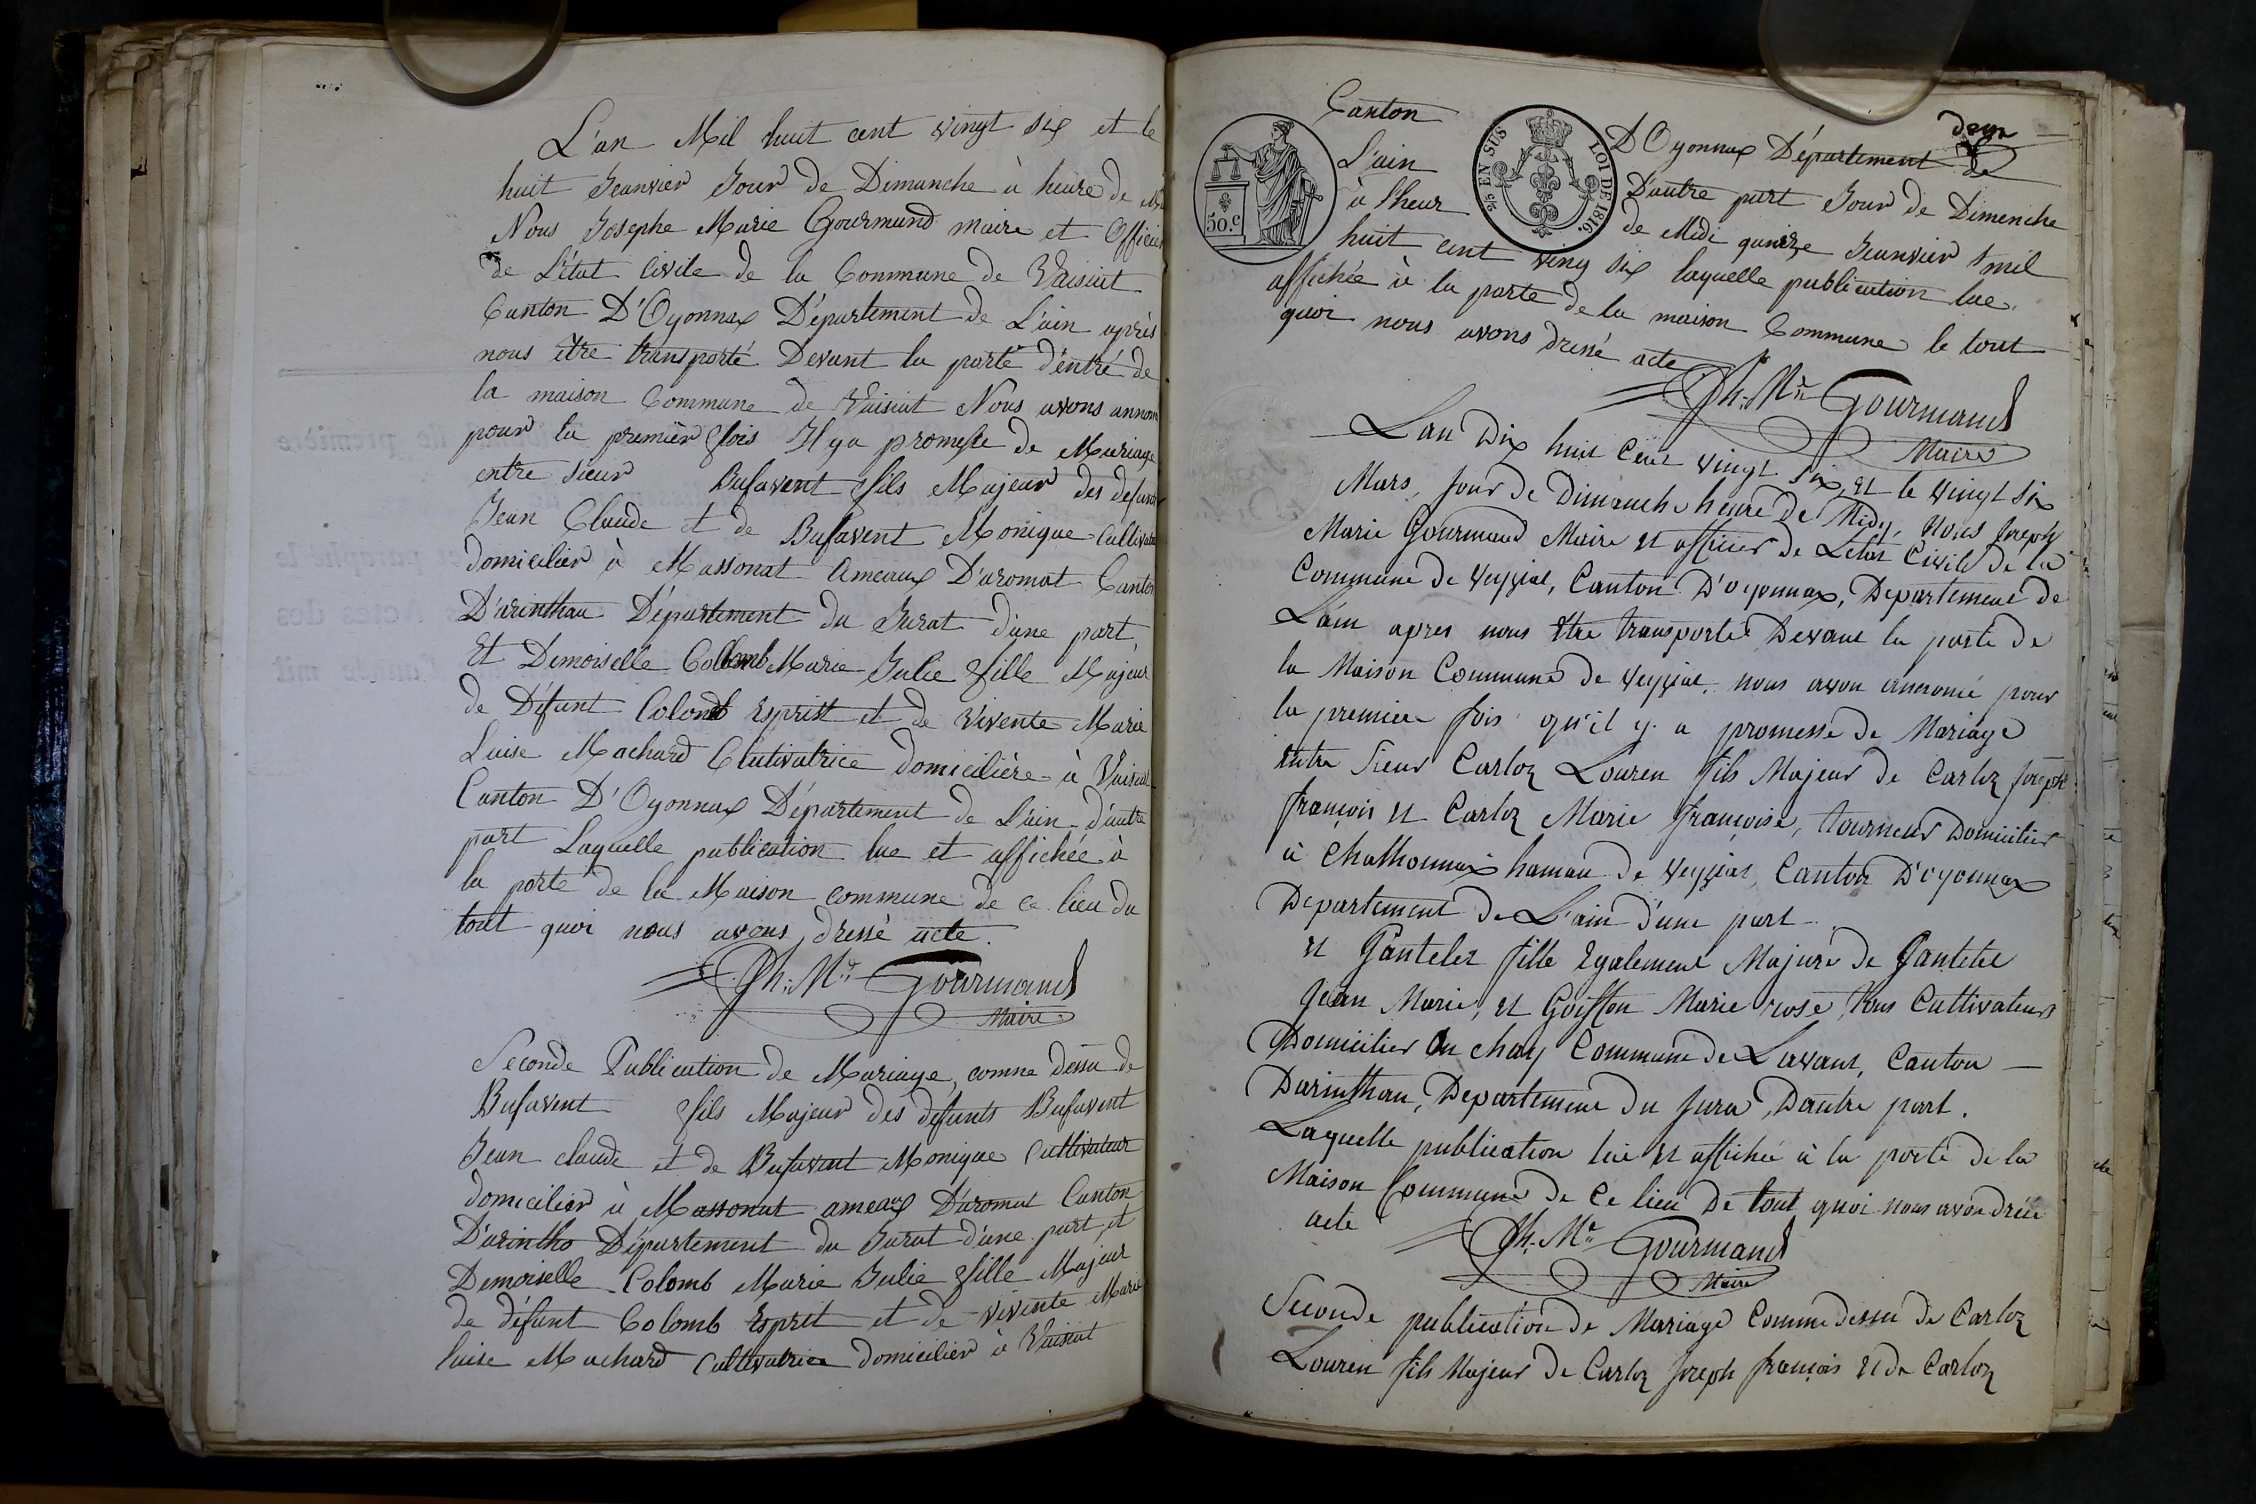 L'an Mil huit cent vingt six et le
huit Jeanvier Jour de Dimanche à heure de
Nous Josephe Marie Gourmand maire et Officier
de L'état Civile de la Commune de Vaisiat
Canton D'Oyonnax Département de L'ain après
nous être transporté Devant la porte d'entré de
la maison Commune de Vaisiat Nous avons annon
pour la premièr fois Il y a promesse de Mariage
entre sieur Bufavent fils Majeur des defunts
Jean Claude et de Bufavent Monique Cultivateur
domicilier à Massonat Ameaux D'aromat Canton
D'arinthau Département du Jurat d'une part
Et Demoiselle Collomb Marie Julie fille Majeur
de Défunt Colomb Esprist et de vivente Marie
Luise Machard Clutivatrice domicilière à Vaisiat
Canton D'Oyonnax Département de L'ain d'autre
part Laquelle publication lue et affichée à
la porte de la Maison commune de ce lieu du
tout quoi nous avons dressé acte.
Jh. Mie Gourmand
Maire
Seconde Publication de Mariage, comme dessu de
Bufavent fils Majeur des défunts Bufavent
Jean claude et de Bufavent Monique Cultivateur
domicilier à Massonat ameaux D'aromat Canton
D'arintho Département du Jurat d'une part et
Demoiselle Colomb Marie Julie fille Majeur
de défunt Colomb Esprit et de vivente Marie
luise Machard Cultivatrice domicilier à Vaisiat
deux
Canton D'Oyonnax Département de
L'ain D'autre part Jour de Dimenche
à l'heur de Midi quinze Jeanvier mil
huit cent ving six laquelle publication lue
affichée à la porte de la maison Commune le tout
quoi nous avons dressé acte
50.c
5/10 EN SUS
LOI DE 1816.
Jh. Mie Gourmand
Maire
L'an Dix huit Cent vingt six, et le vingt six
Mars, Jour de Dimanche heure De Midy, Nous Joseph
Marie Gourmand Maire et officier de Letat Civile de la
Commune de Veyziat, Canton D'oyonnax, Departement de
L'ain apres nous être transporté Devant la porte de
la Maison Commune de Veyziat, nous avon annoncé pour
la premiere fois qu'il y a promesse de Mariage
Entre sieur Carloz Louren fils Majeur de Carloz Joseph
françois et Carloz Marie françoise, tourneur Domicilier
à Chathonnax hamau de Veyziat, Canton D'oyonnax
Departement de L'ain d'une part
et Pantelet fille Egalement Majure de Pantelet
Jean Marie, et Goiffon Marie rose, tous Cultivateurs
Domicilier Au chay Commune de Lavant, Canton
Darinthau, Departement Du Jura, Dautre part.
Laquelle publication lue et affiché à la porte de la
Maison Commune de Ce lieu De tout quoi nous avon dréée
acte
Jh. Mie Gourmand
Maire
Seconde publication de Mariage Comme dessu de Carloz
Louren fils Majeur de Carloz Joseph françois et de Carloz